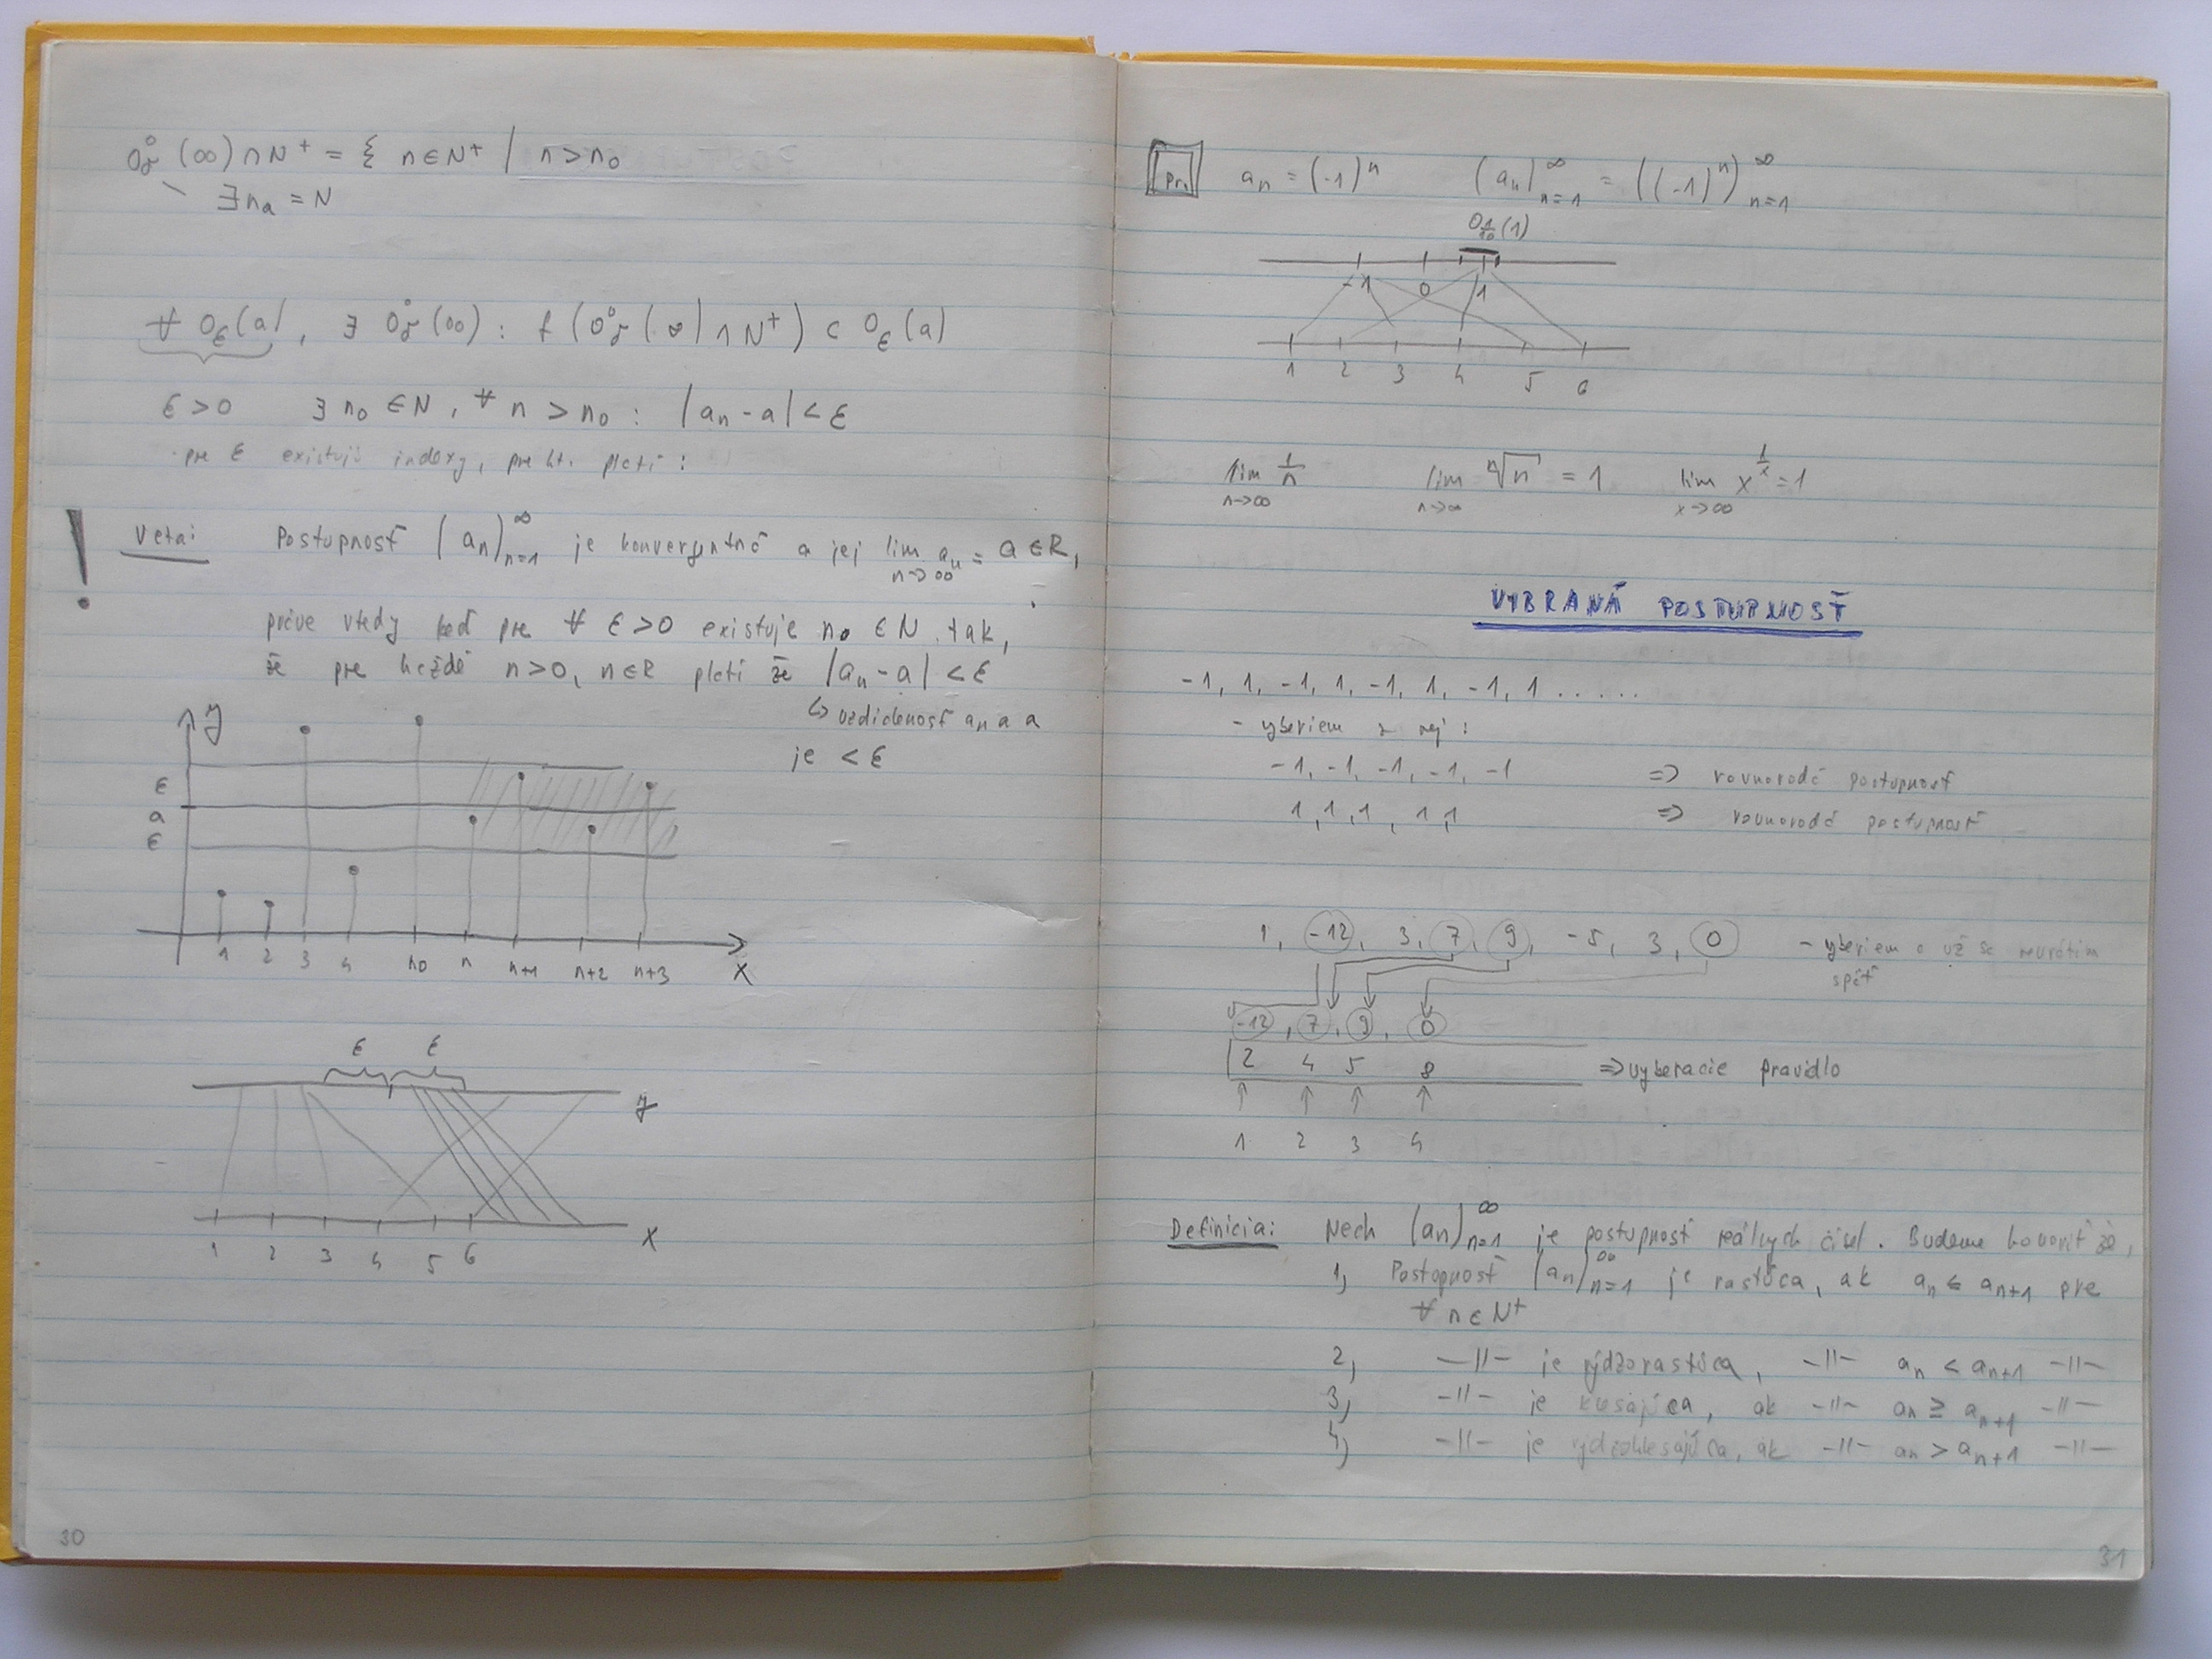 O°δ (∞) ∩ N⁺ = { n ∈ N⁺ | n > n₀
∃ nₐ = N
∀ Oε(a), ∃ O°δ(∞) : f (O°δ(∞) ∩ N⁺) ⊂ Oε(a)
ε > 0 ∃ n₀ ∈ N, ∀ n > n₀ : |aₙ - a| < ε
pre ε existujú indexy, pre kt. platí :
! Veta: Postupnosť (aₙ)ₙ₌₁^∞ je konvergentná a jej lim n→∞ aₙ = a ∈ R,
práve vtedy keď pre ∀ ε > 0 existuje n₀ ∈ N tak,
že pre každé n > 0, n ∈ R platí že |aₙ - a| < ε
↳ vzdialenosť aₙ a a
je < ε
y
ε
a
ε
1 2 3 4 n₀ n n+1 n+2 n+3 x
ε ε
y
1 2 3 4 5 6 x
30
Pr. aₙ = (-1)ⁿ (aₙ)ₙ₌₁^∞ = ((-1)ⁿ)ₙ₌₁^∞
O 1/10 (1)
-1 0 1
1 2 3 4 5 6
lim n→∞ 1/n lim n→∞ ⁿ√n = 1 lim x→∞ x^(1/x) = 1
VYBRANÁ POSTUPNOSŤ
-1, 1, -1, 1, -1, 1, -1, 1 .....
- vyberiem z nej :
-1, -1, -1, -1, -1 => rovnorodá postupnosť
1, 1, 1, 1, 1 => rovnorodá postupnosť
1, -12, 3, 7, 9, -5, 3, 0 - vyberiem a už sa nevrátim
späť
-12, 7, 9, 0
2 4 5 8 => vyberacie pravidlo
↑ ↑ ↑ ↑
1 2 3 4
Definícia: Nech (aₙ)ₙ₌₁^∞ je postupnosť reálnych čísel. Budeme hovoriť že,
1, Postupnosť (aₙ)ₙ₌₁^∞ je rastúca, ak aₙ ≤ aₙ₊₁ pre
∀ n ∈ N⁺
2, -||- je rýdzorastúca, -||- aₙ < aₙ₊₁ -||-
3, -||- je klesajúca, ak -||- aₙ ≥ aₙ₊₁ -||-
4) -||- je rýdzoklesajúca, ak -||- aₙ > aₙ₊₁ -||-
31